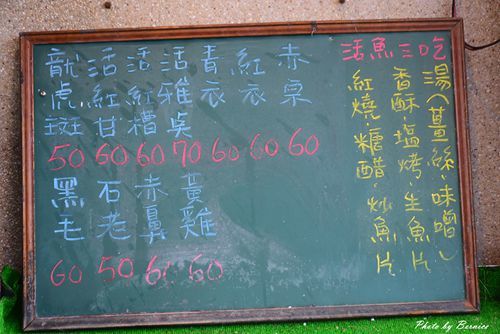 龍虎斑
活紅甘
活紅糟
活雅吳
青衣
紅衣
赤
50 60 60 70 60 60 60
黑毛
石老
赤鼻
黃雞
60 50 60 60
活魚三吃
湯(薑絲、味噌)
香酥、塩烤、生魚片
紅燒、糖醋、炒魚片
Photo by Bernice